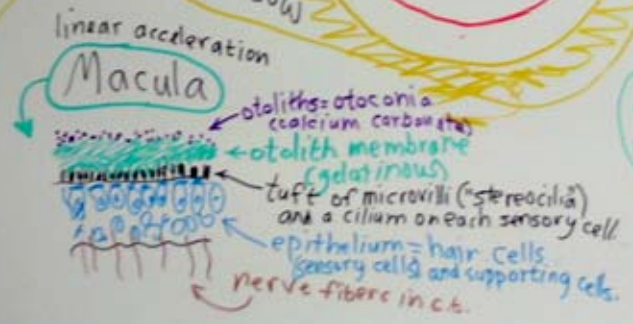 linear acceleration
Macula
otoliths=otoconia
(calcium carbonate)
otolith membrane
(gelatinous)
tuft of microvilli ("stereocilia")
and a cilium on each sensory cell.
epithelium = hair cells
(sensory cells) and supporting cells.
nerve fibers in c.t.